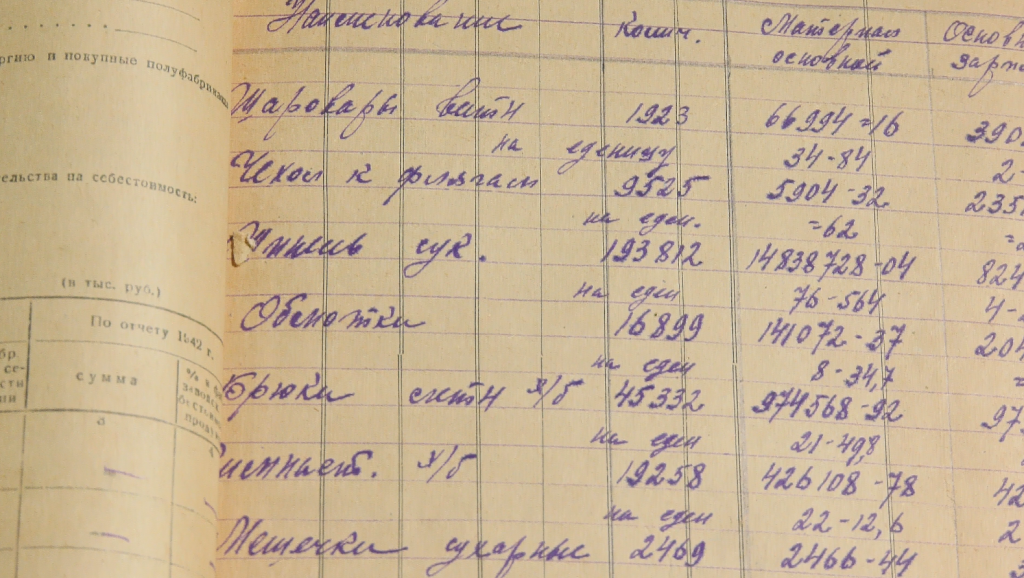 ргию и покупные полуфабрикаты
ельства на себестоимость:
(в тыс. руб.)
По отчету 1942 г.
сумма
Наименование Колич. Матерьял основной Основн зарпл
Шаровары ватн 1923 66994=16 390
на еденицу 34-84 2-
Чехол к флягам 9525 5904-32 235
на еден. =62
Шинель сук. 193812 14838728-04 824
на еден 76-564 4-
Обмотки 16899 141072-37 204
на еден 8-34,7
Брюки х/б 45332 974568-92 97
на еден 21-49,8
х/б 19258 426108-78 42
на еден 22-12,6 2
Мешечки сухарные 2469 2466-44